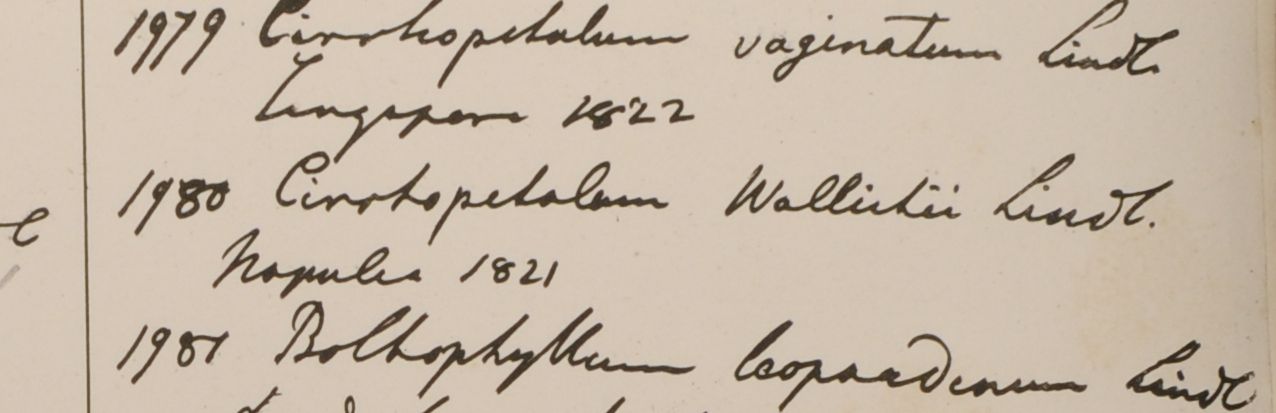 1979 Cirrhopetalum vaginatum Lindl.
Singapore 1822
1980 Cirrhopetalum Wallichii Lindl.
Napulia 1821
1981 Bolbophyllum leopardinum Lindl